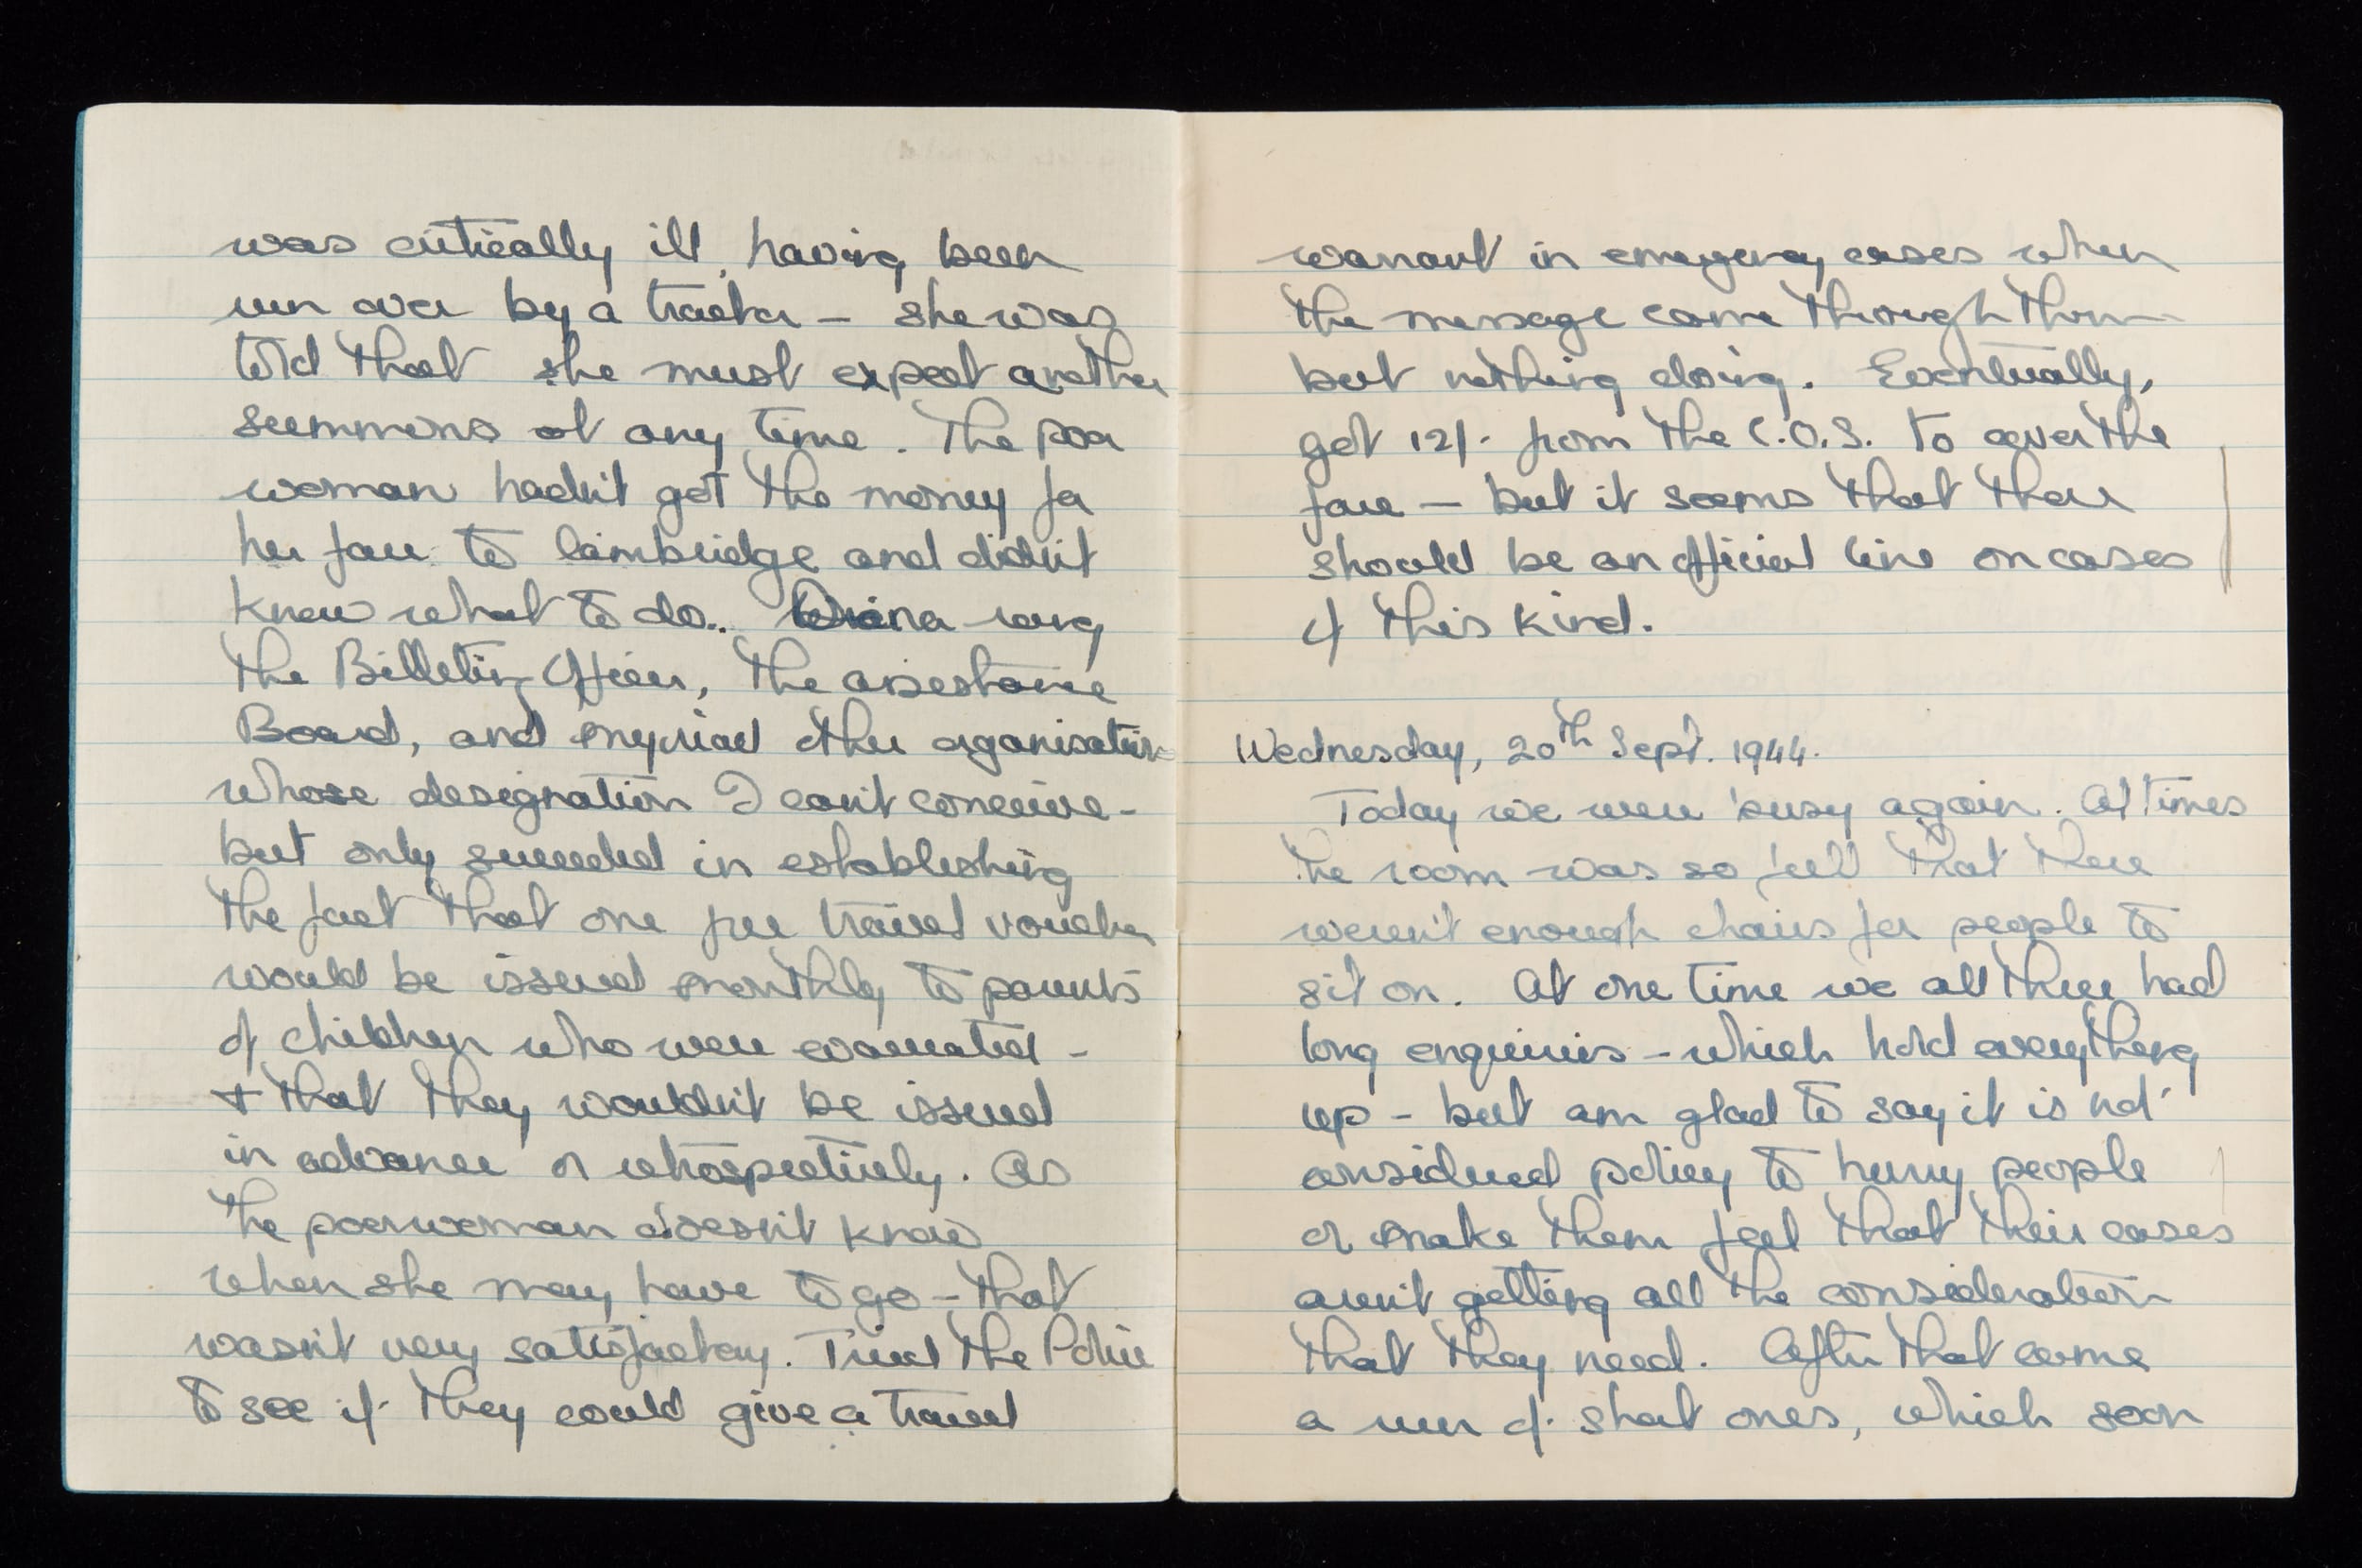 was critically ill, having been
run over by a tractor – she was
told that she must expect another
summons at any time. The poor
woman hadn't got the money for
her fare to Cambridge and didn't
know what to do.. Diana rang
the Billeting Officer, the assistance
Board, and myriad other organisations
whose designation I can't conceive –
but only succeeded in establishing
the fact that one free travel voucher
would be issued monthly to parents
of children who were evacuated –
+ that they wouldn't be issued
in advance or retrospectively. As
the poor woman doesn't know
when she may have to go – that
wasn't very satisfactory. Tried the Police
to see if they could give a travel
warrant in emergency cases when
the message came through them
but nothing doing. Eventually,
got 12/- from the C.O.S. to cover the
fare – but it seems that there
should be an official line on cases
of this kind.
Wednesday, 20th Sept. 1944.
Today we were busy again. At times
the room was so full that there
weren't enough chairs for people to
sit on. At one time we all three had
long enquiries – which hold everything
up – but am glad to say it is not
considered policy to hurry people
or make them feel that their cases
aren't getting all the consideration
that they need. After that came
a run of short ones, which soon